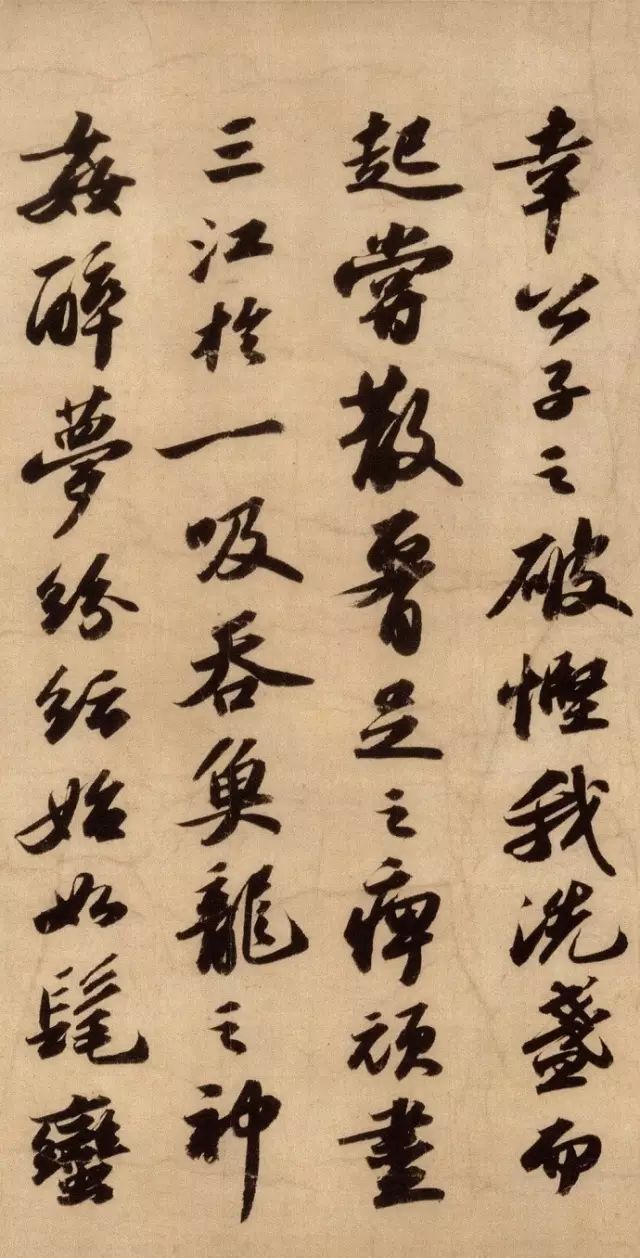 幸公子之破慳我洗盞而
起嘗散腰足之痺頑盡
三江於一吸吞魚龍之神
姦醉夢紛紜始如髦蠻